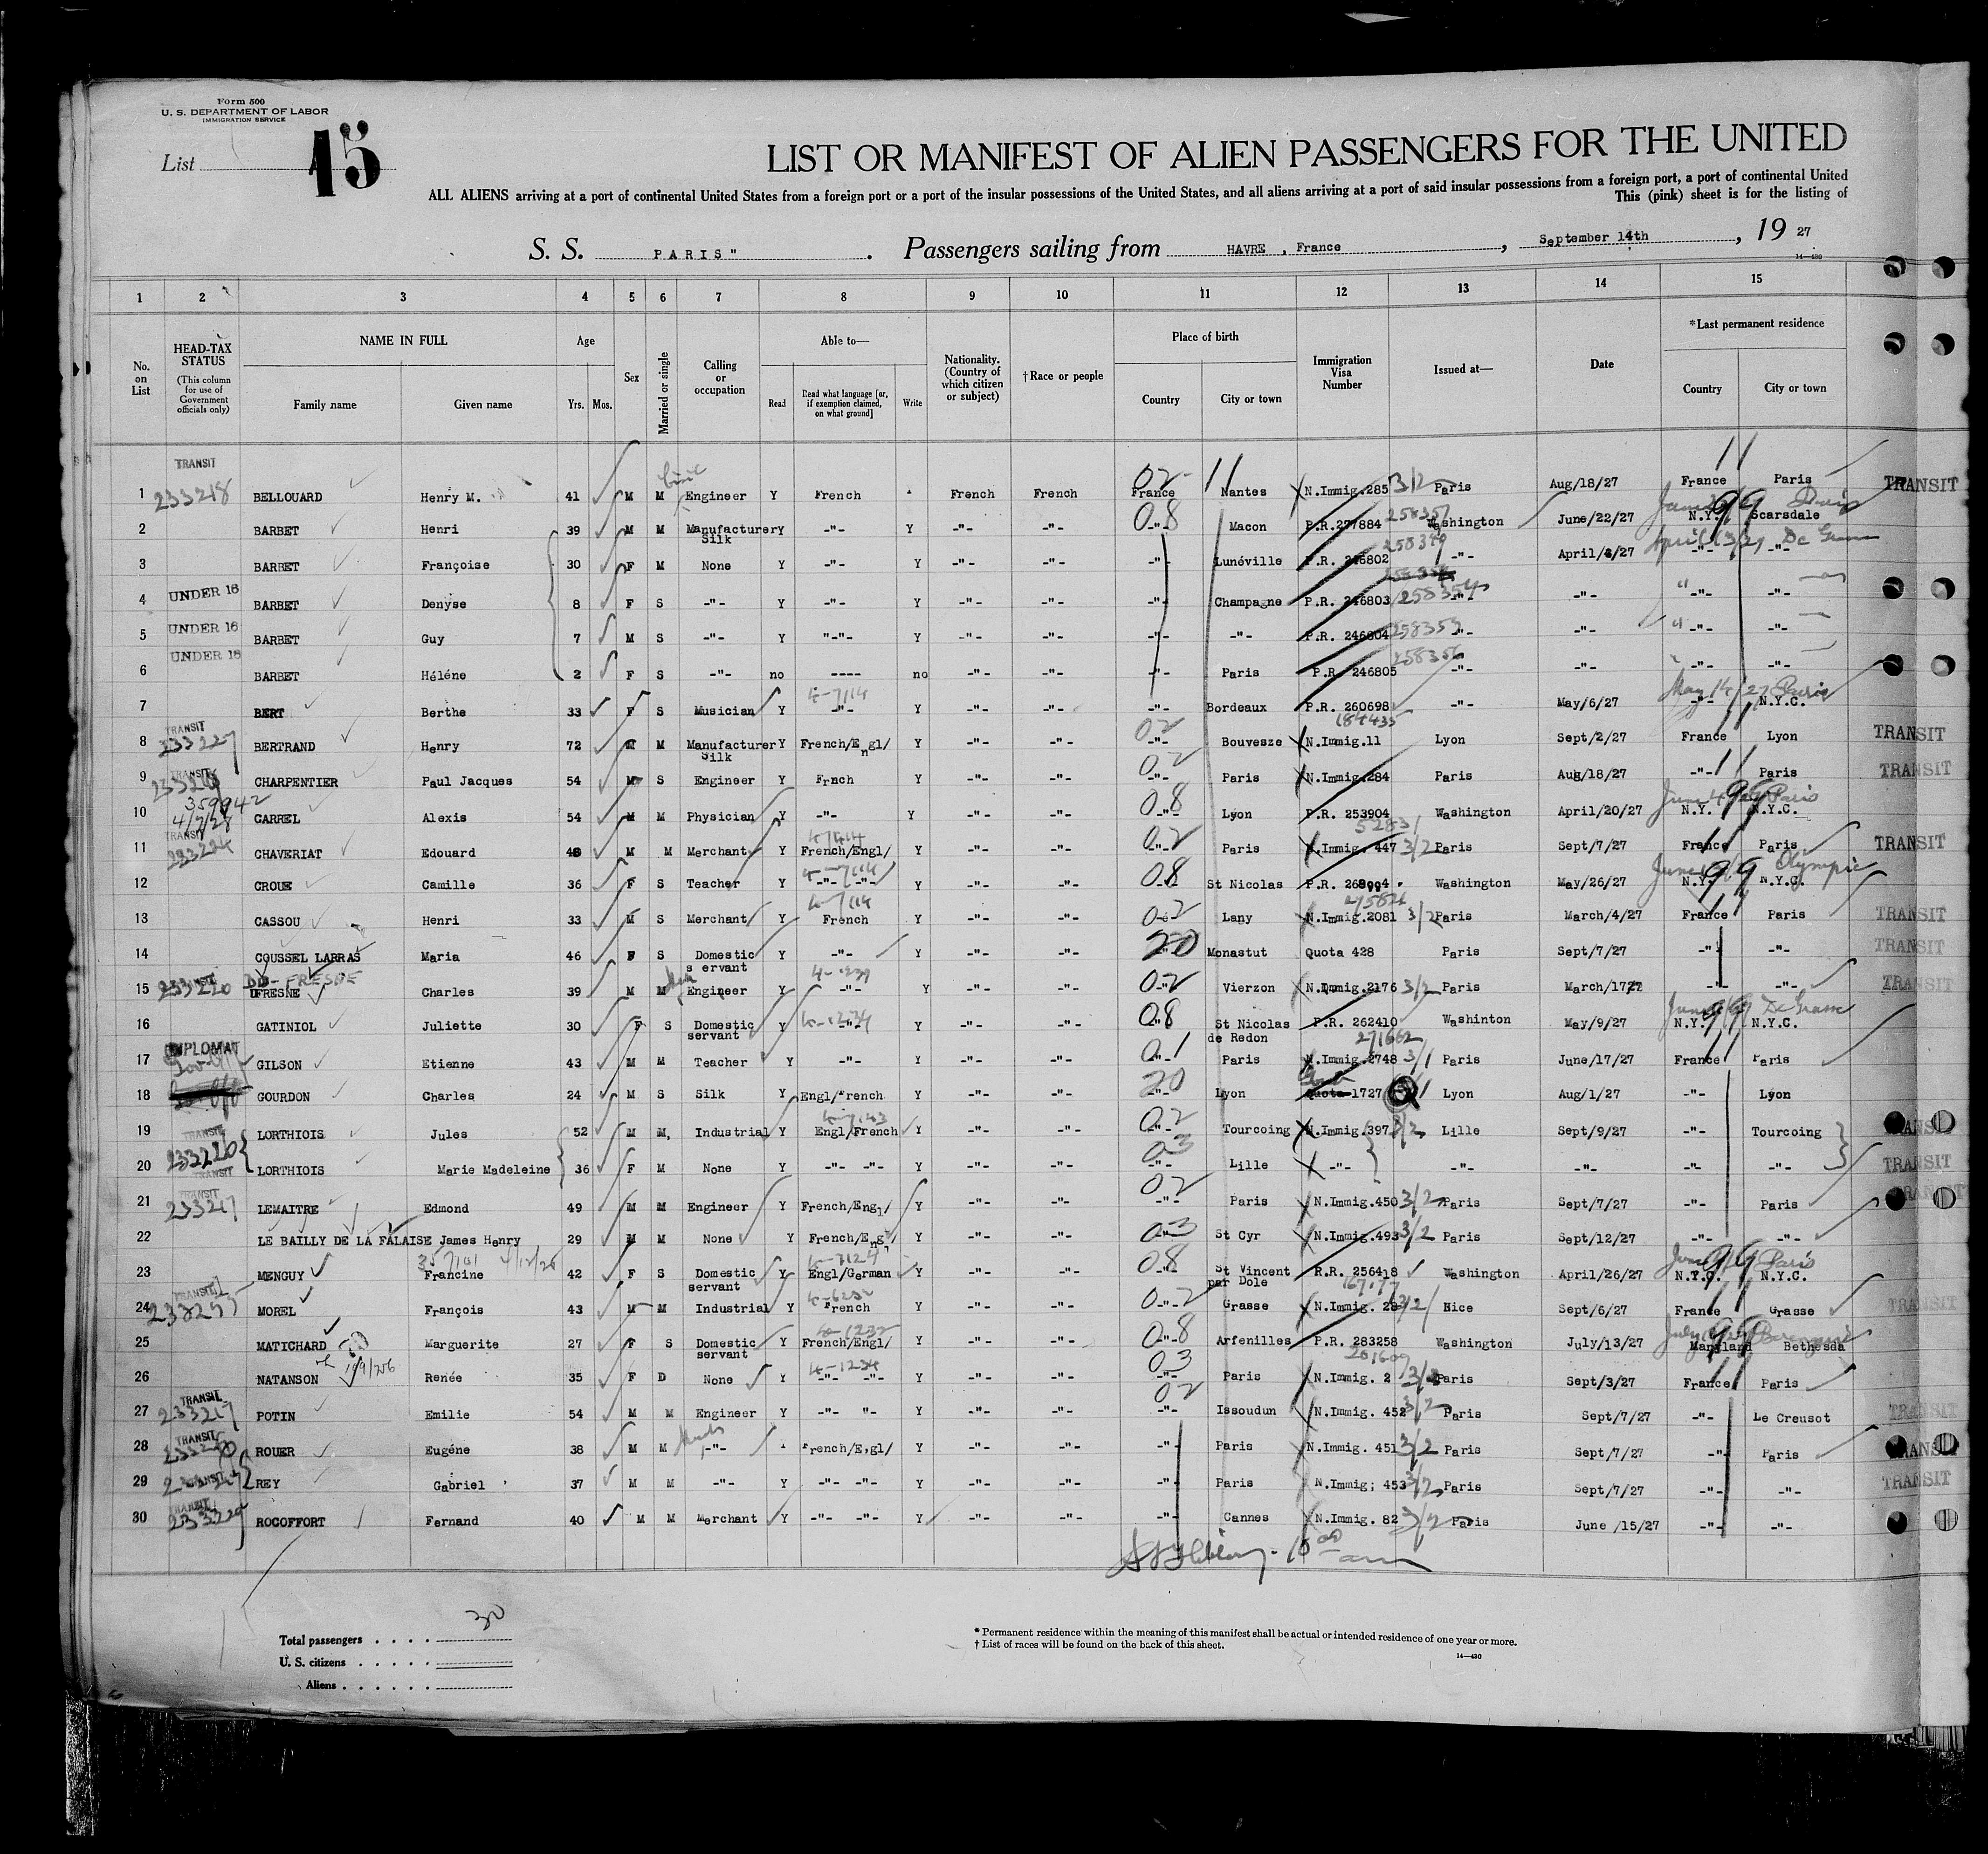 Form 500
U. S. DEPARTMENT OF LABOR
IMMIGRATION SERVICE
List 15
LIST OR MANIFEST OF ALIEN PASSENGERS FOR THE UNITED
ALL ALIENS arriving at a port of continental United States from a foreign port or a port of the insular possessions of the United States, and all aliens arriving at a port of said insular possessions from a foreign port, a port of continental United
This (pink) sheet is for the listing of
S. S. PARIS" . Passengers sailing from HAVRE , France , September 14th , 19 27
14—430
1 2 3 4 5 6 7 8 9 10 11 12 13 14 15
No. on List
HEAD-TAX STATUS (This column for use of Government officials only)
NAME IN FULL
Family name Given name
Age
Yrs. Mos.
Sex
Married or single
Calling or occupation
Able to—
Read Read what language [or, if exemption claimed, on what ground] Write
Nationality. (Country of which citizen or subject)
†Race or people
Place of birth
Country City or town
Immigration Visa Number
Issued at—
Date
*Last permanent residence
Country City or town
TRANSIT
1 233218 BELLOUARD Henry M. 41 M M Engineer Y French French French France Nantes N.Immig.285 3/2 Paris Aug/18/27 France Paris TRANSIT
2 BARBET Henri 39 M M Manufacturer Silk Y -"- Y -"- -"- 08 -"- Macon P.R.277884 258357 Washington June/22/27 N.Y. Scarsdale
3 BARBET Françoise 30 F M None Y -"- Y -"- -"- -"- Lunéville P.R. 246802 -"- April/8/27 -"- -"-
4 UNDER 16 BARBET Denyse 8 F S -"- Y -"- Y -"- -"- -"- Champagne P.R. 246803 258354 -"- -"- -"- -"-
5 UNDER 16 BARBET Guy 7 M S -"- Y "-"- Y -"- -"- -"- -"- P.R. 246804 -"- -"- -"- -"-
6 UNDER 16 BARBET Héléne 2 F S -"- no ---- no -"- -"- -"- Paris P.R. 246805 -"- -"- -"- -"-
7 BERT Berthe 33 F S Musician Y -"- Y -"- -"- -"- Bordeaux P.R. 260698 -"- May/6/27 May 14/27 Paris -"- N.Y.C.
8 TRANSIT 233227 BERTRAND Henry 72 M M Manufacturer Silk Y French/Engl/ Y -"- -"- 02 -"- Bouvesze N.Immig.11 184435 Lyon Sept/2/27 France Lyon TRANSIT
9 TRANSIT CHARPENTIER Paul Jacques 54 M S Engineer Y Frnch Y -"- -"- 02 -"- Paris N.Immig.284 Paris Aug/18/27 -"- Paris TRANSIT
10 359942 4/7/28 CARREL Alexis 54 M M Physician Y -"- Y -"- -"- 08 Lyon P.R. 253904 Washington April/20/27 N.Y. N.Y.C.
11 TRANSIT 233224 CHAVERIAT Edouard 48 M M Merchant Y French/Engl/ Y -"- -"- 02 -"- Paris N.Immig. 447 3/2 Paris Sept/7/27 France Paris TRANSIT
12 CROUE Camille 36 F S Teacher Y -"- -"- Y -"- -"- 08 -"- St Nicolas P.R. Washington May/26/27 Olympic N.Y. N.Y.C.
13 CASSOU Henri 33 M S Merchant Y French Y -"- -"- 02 Lany N.Immig.2081 3/2 Paris March/4/27 France Paris TRANSIT
14 COUSSEL LARRAS Maria 46 F S Domestic servant Y -"- Y -"- -"- 20 Monastut Quota 428 Paris Sept/7/27 -"- -"- TRANSIT
15 233220 DU- FRESNE DFRESNE Charles 39 M M Engineer Y -"- Y -"- -"- 02 -"- Vierzon N.Immig.2176 3/2 Paris March/17 -"- -"- TRANSIT
16 GATINIOL Juliette 30 F S Domestic servant Y -"- Y -"- -"- 08 -"- St Nicolas de Redon P.R. 262410 Washinton May/9/27 N.Y. N.Y.C.
17 DIPLOMAT GILSON Etienne 43 M M Teacher Y -"- Y -"- -"- 01 -"- Paris N.Immig.2748 271662 3/1 Paris June/17/27 France Paris
18 GOURDON Charles 24 M S Silk Y Engl/French Y -"- -"- 20 -"- Lyon Quota 1727 Lyon Aug/1/27 -"- Lyon
19 TRANSIT LORTHIOIS Jules 52 M M, Industrial Y Engl/French Y -"- -"- 02 -"- Tourcoing N.Immig.397 3/2 Lille Sept/9/27 -"- Tourcoing TRANSIT
20 233220 TRANSIT LORTHIOIS Marie Madeleine 36 F M None Y -"- -"- Y -"- -"- 03 -"- Lille -"- -"- -"- -"- -"- TRANSIT
21 TRANSIT 233217 LEMAITRE Edmond 49 M M Engineer Y French/Engl/ Y -"- -"- 02 -"- Paris N.Immig.450 3/2 Paris Sept/7/27 -"- Paris TRANSIT
22 LE BAILLY DE LA FALAISE James Henry 29 M M None Y French/Engl Y -"- -"- 03 -"- St Cyr N.Immig.493 3/2 Paris Sept/12/27 -"- -"-
23 MENGUY Francine 42 F S Domestic servant Y Engl/German Y -"- -"- 08 -"- St Vincent par Dole R.R. 256418 Washington April/26/27 N.Y.C. N.Y.C.
24 TRANSIT MOREL François 43 M M Industrial Y French Y -"- -"- 02 -"- Grasse N.Immig. 3/2 Nice Sept/6/27 France Grasse TRANSIT
25 MATICHARD Marguerite 27 F S Domestic servant Y French/Engl/ Y -"- -"- 08 -"- Arfenilles P.R. 283258 Washington July/13/27 Maryland Bethesda
26 NATANSON Renée 35 F D None Y -"- -"- Y -"- -"- 03 Paris N.Immig. 2 Paris Sept/3/27 France Paris
27 TRANSIT 233217 POTIN Emilie 54 M M Engineer Y -"- "- Y -"- -"- 02 -"- Issoudun N.Immig. 452 3/2 Paris Sept/7/27 -"- Le Creusot TRANSIT
28 TRANSIT ROUER Eugéne 38 M M -"- French/Engl/ Y -"- -"- -"- Paris N.Immig. 451 3/2 Paris Sept/7/27 -"- Paris TRANSIT
29 REY Gabriel 37 M M -"- Y -"- -"- Y -"- -"- -"- Paris N.Immig; 453 3/2 Paris Sept/7/27 -"- -"- TRANSIT
30 TRANSIT 233229 ROCOFFORT Fernand 40 M M Merchant Y -"- -"- Y -"- -"- -"- Cannes N.Immig. 82 3/2 Paris June /15/27 -"- -"-
Total passengers . . . . 30
U. S. citizens . . . . .
Aliens . . . . . .
* Permanent residence within the meaning of this manifest shall be actual or intended residence of one year or more.
† List of races will be found on the back of this sheet.
14—430